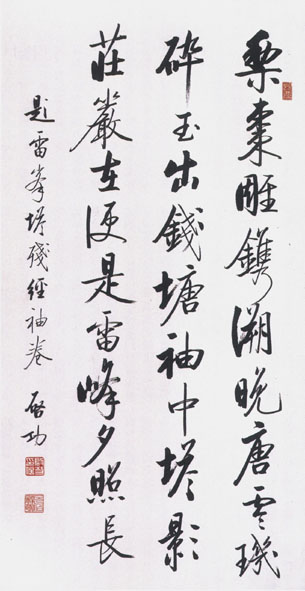 梨棗雕鐫溯晚唐零璣
碎玉出錢塘袖中塔影
莊嚴在便是雷峰夕照長
題雷峯塔殘經袖卷 啟功